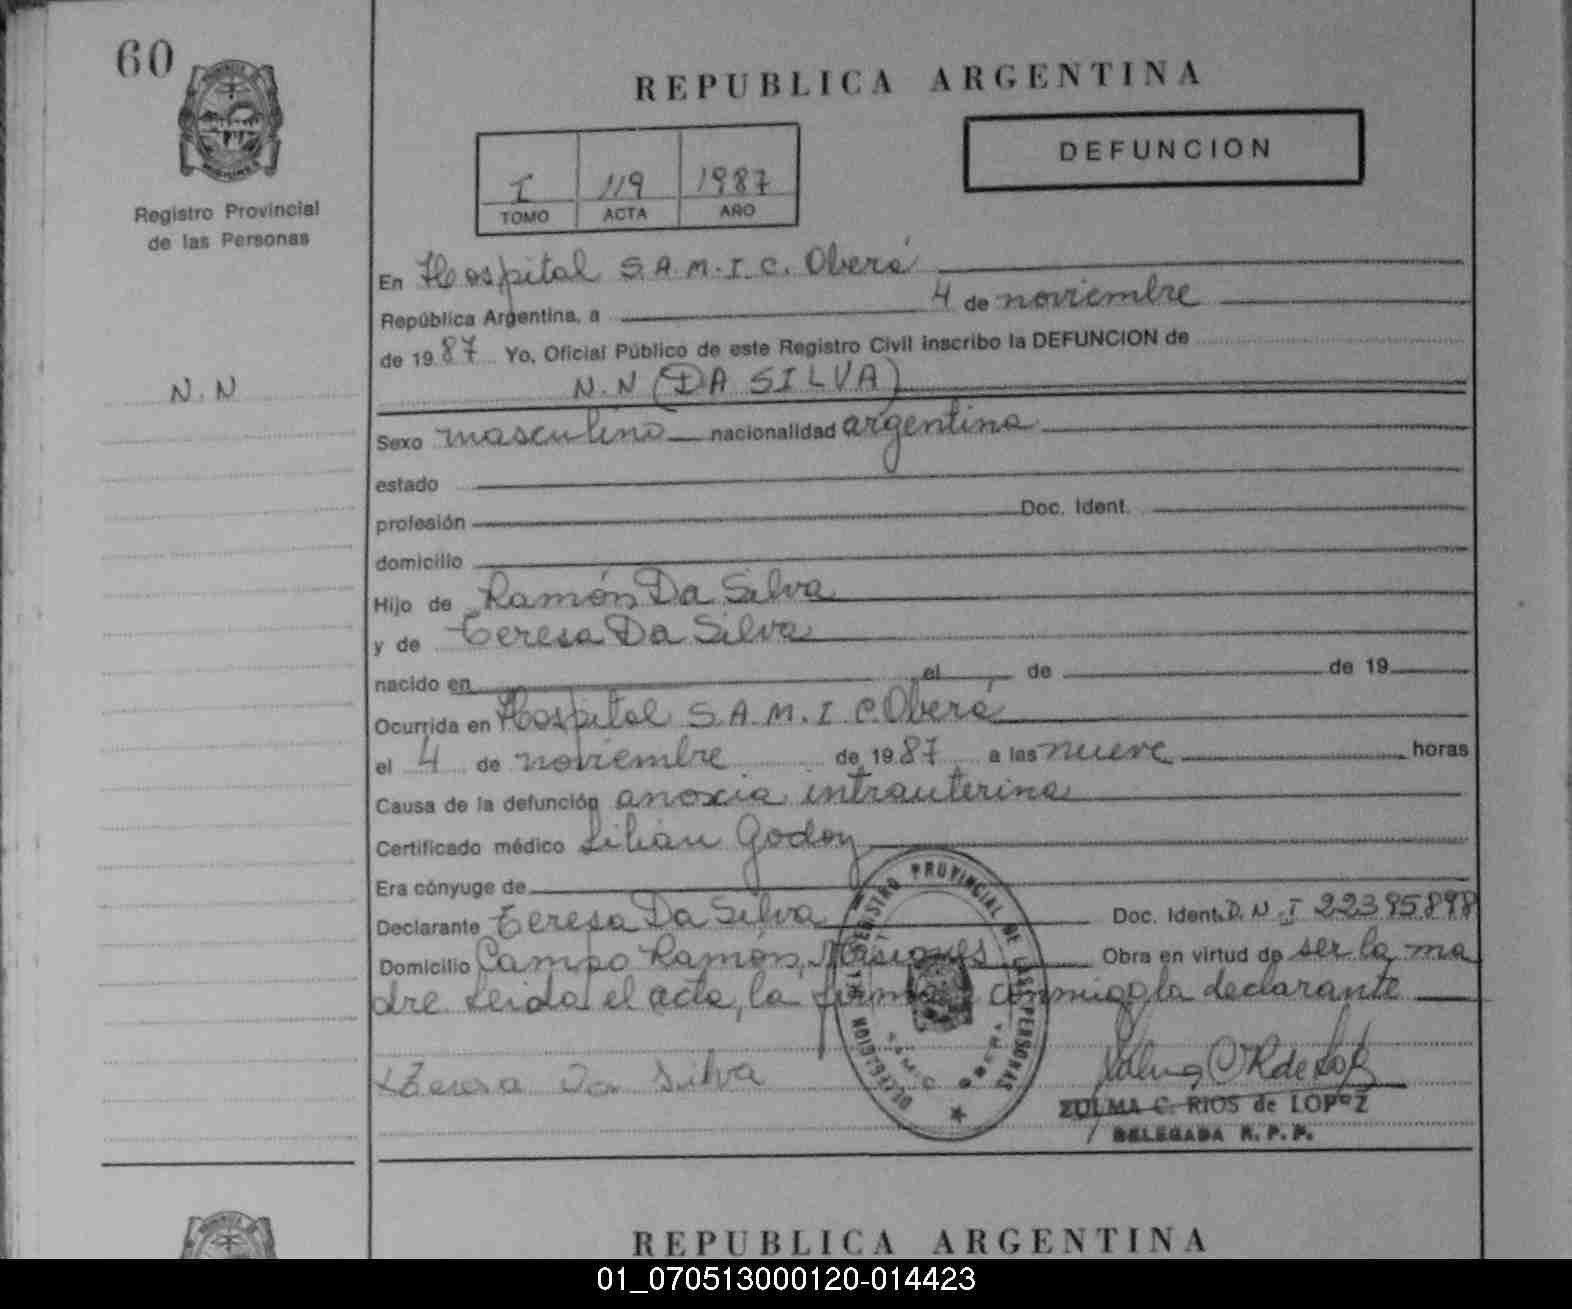 60
REPUBLICA ARGENTINA
DEFUNCION
I 119 1987
TOMO ACTA AÑO
Registro Provincial
de las Personas
En Hospital S.A.M.I.C. Oberá
República Argentina, a 4 de noviembre
de 1987 Yo, Oficial Público de este Registro Civil inscribo la DEFUNCION de
N.N N.N (DA SILVA)
Sexo masculino nacionalidad argentina
estado
profesión Doc. Ident.
domicilio
Hijo de Ramón Da Silva
y de Teresa Da Silva
nacido en el de de 19
Ocurrida en Hospital S.A.M.I.C. Oberá
el 4 de noviembre de 1987 a las nueve horas
Causa de la defunción anoxia intrauterina
Certificado médico Lilian Godoy
Era cónyuge de
Declarante Teresa Da Silva Doc. Ident. D.N.I 22395898
Domicilio Campo Ramón, Misiones Obra en virtud de ser la ma
dre Leida el acta, la firma conmigo la declarante
Teresa Da Silva
ZULMA C. RIOS de LOPEZ
DELEGADA R. P. P.
REGISTRO PROVINCIAL DE LAS PERSONAS
REPUBLICA ARGENTINA
01_070513000120-014423